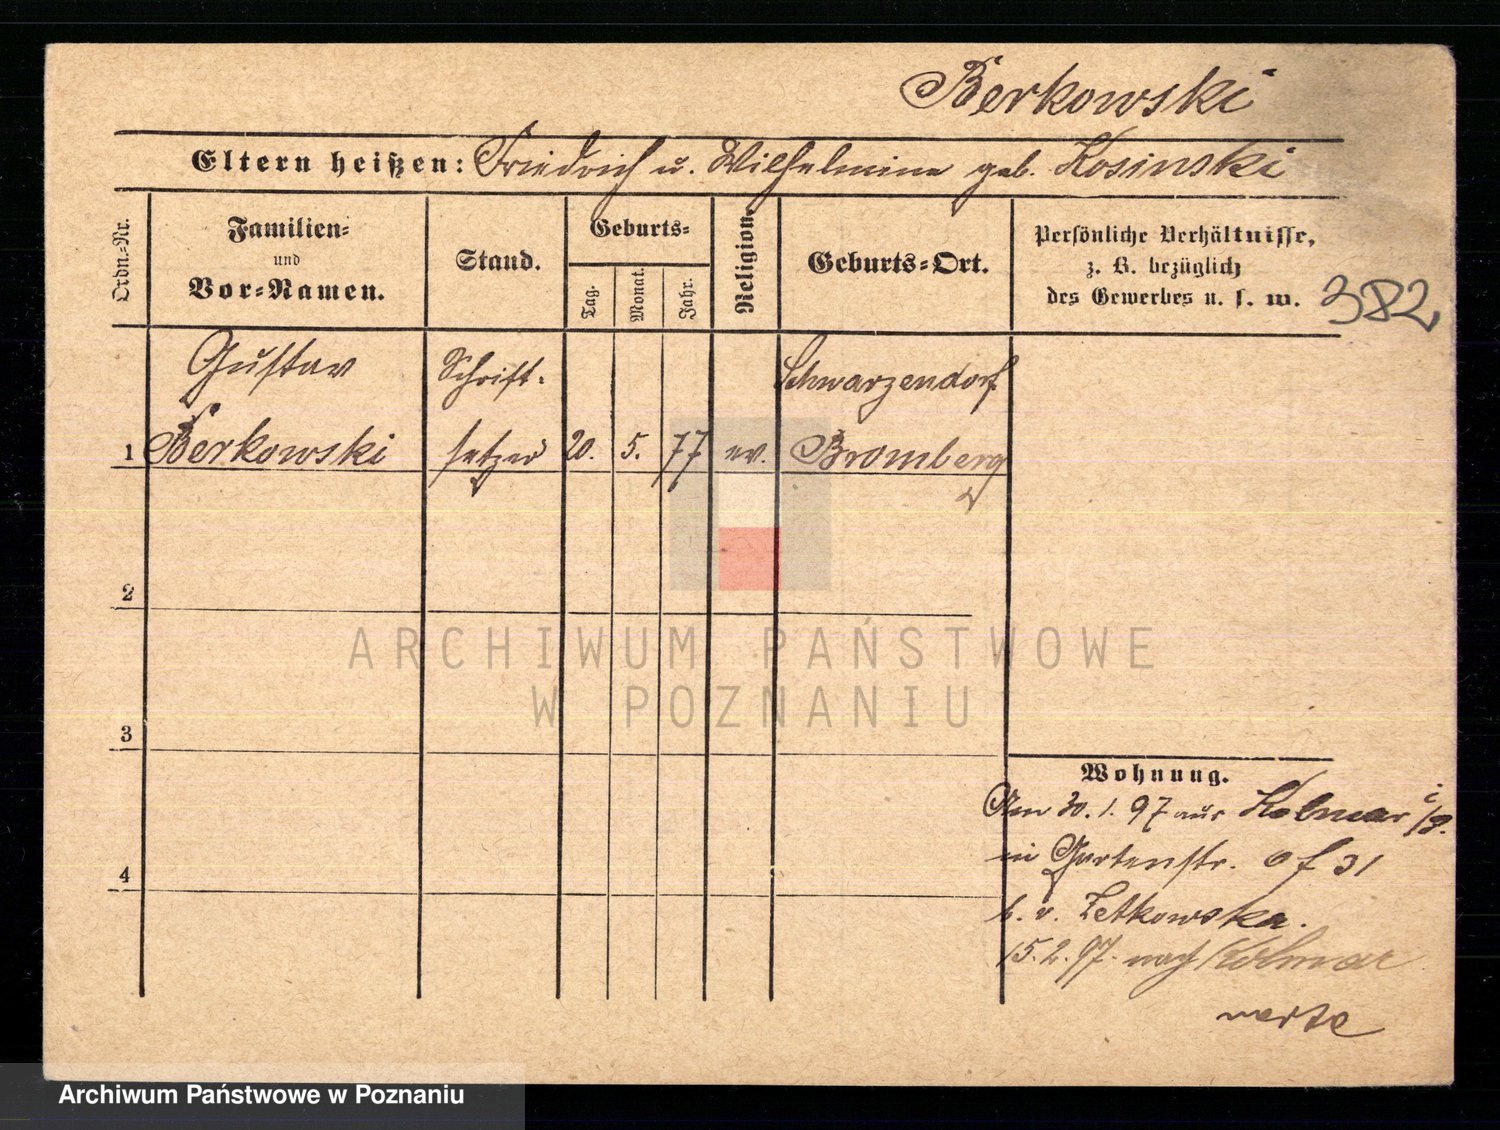 Berkowski
Eltern heißen: Friedrich u. Wilhelmine geb. Kosinski
Ordn.-Nr.
Familien-
und
Vor-Namen.
Stand.
Geburts-
Tag.
Monat.
Jahr.
Religion.
Geburts-Ort.
Persönliche Verhältnisse,
z. B. bezüglich
des Gewerbes u. s. w.
382
Gustav Schrift- Schwarzendorf
1 Berkowski setzer 20. 5. 77 ev. Bromberg
2
3
4
Wohnung.
Am 30.1.97 aus Kolmar i/P.
in Gartenstr. 31
b. v. Zetkowska.
15.2.97. nach Kolmar
ARCHIWUM PAŃSTWOWE
W POZNANIU
Archiwum Państwowe w Poznaniu